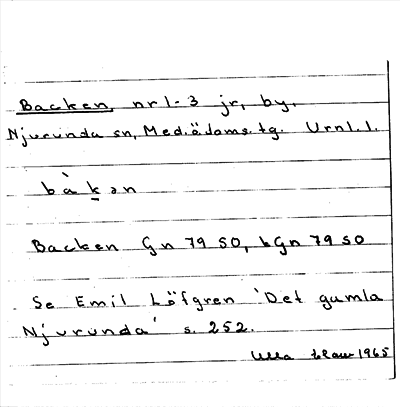 Backen, nr 1-3 jr, by.
Njurunda sn, Med.ädoms. tg. Urnl. l.
bàk̲ən
Backen Gn 79 SO, bGn 79 SO
Se Emil Löfgren 'Det gamla
Njurunda' s. 252.
Ulla 1965